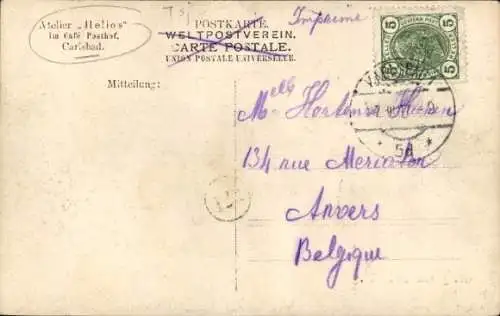 Atelier „Helios"
im Café Posthof,
Carlsbad.
T
POSTKARTE.
Imprimé
WELTPOSTVEREIN.
CARTE POSTALE.
UNION POSTALE UNIVERSELLE.
5 5
5 5
Mitteilung:
Melle Hortense
134 rue
Anvers
Belgique
* 5d *